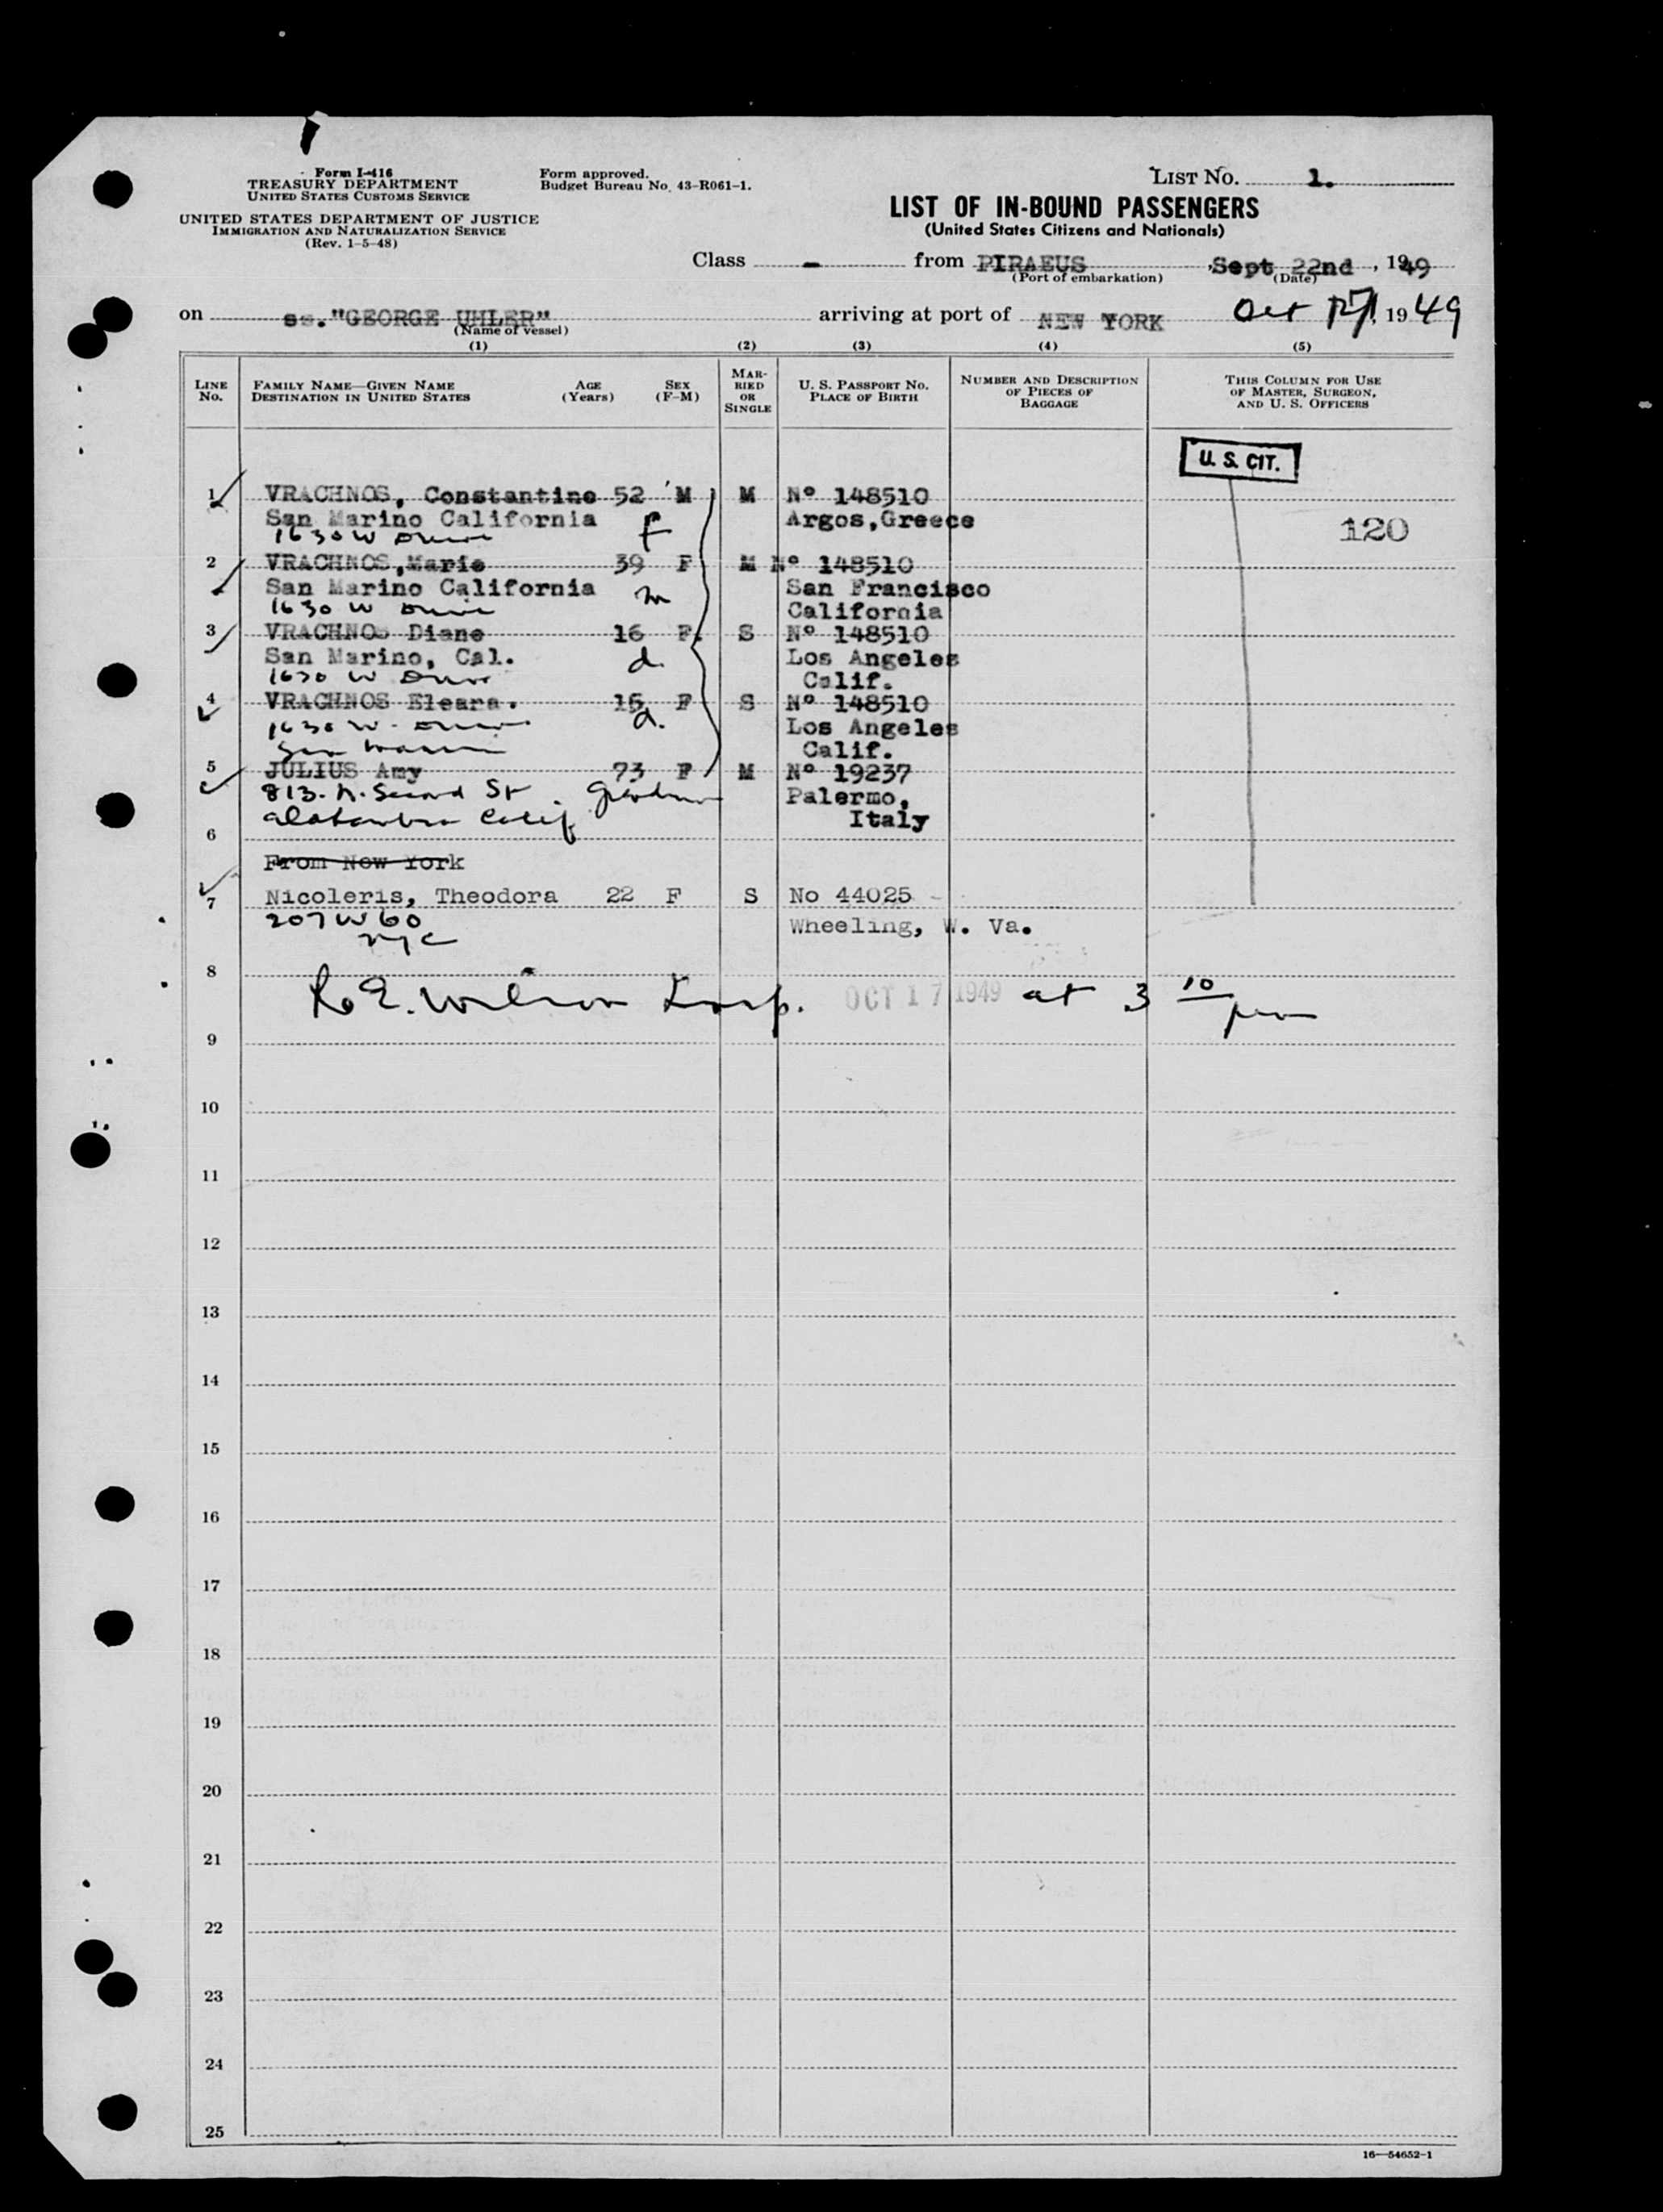 Form I-416
TREASURY DEPARTMENT
UNITED STATES CUSTOMS SERVICE
UNITED STATES DEPARTMENT OF JUSTICE
IMMIGRATION AND NATURALIZATION SERVICE
(Rev. 1-5-48)
Form approved.
Budget Bureau No. 43-R061-1.
LIST NO. 1.
LIST OF IN-BOUND PASSENGERS
(United States Citizens and Nationals)
Class - from PIRAEUS, Sept 22nd, 1949
(Port of embarkation) (Date)
on ss."GEORGE UHLER" arriving at port of NEW YORK Oct 17, 1949
(Name of vessel)
(1) (2) (3) (4) (5)
LINE NO.
FAMILY NAME—GIVEN NAME
DESTINATION IN UNITED STATES
AGE (Years)
SEX (F-M)
MARRIED OR SINGLE
U. S. PASSPORT NO.
PLACE OF BIRTH
NUMBER AND DESCRIPTION OF PIECES OF BAGGAGE
THIS COLUMN FOR USE OF MASTER, SURGEON, AND U. S. OFFICERS
U. S. CIT.
1 VRACHNOS, Constantine 52 M M Nº 148510
San Marino California f Argos,Greece 120
1630 W Drive
2 VRACHNOS,Marie 39 F M Nº 148510
San Marino California m San Francisco
1630 W Drive California
3 VRACHNOS Diane 16 F. S Nº 148510
San Marino, Cal. d. Los Angeles
1630 W Drive Calif.
4 VRACHNOS Eleara. 15 F S Nº 148510
1630 W. Drive d. Los Angeles
San Marino Calif.
5 JULIUS Amy 73 F M Nº 19237
813. N. Second St Palermo,
Alhambra Calif Italy
6
From New York
7 Nicoleris, Theodora 22 F S No 44025 -
207 W 60 Wheeling, W. Va.
NYC
8
R. E. Wilson Insp. OCT 17 1949 at 3 10 pm
9
10
11
12
13
14
15
16
17
18
19
20
21
22
23
24
25
16—54652-1